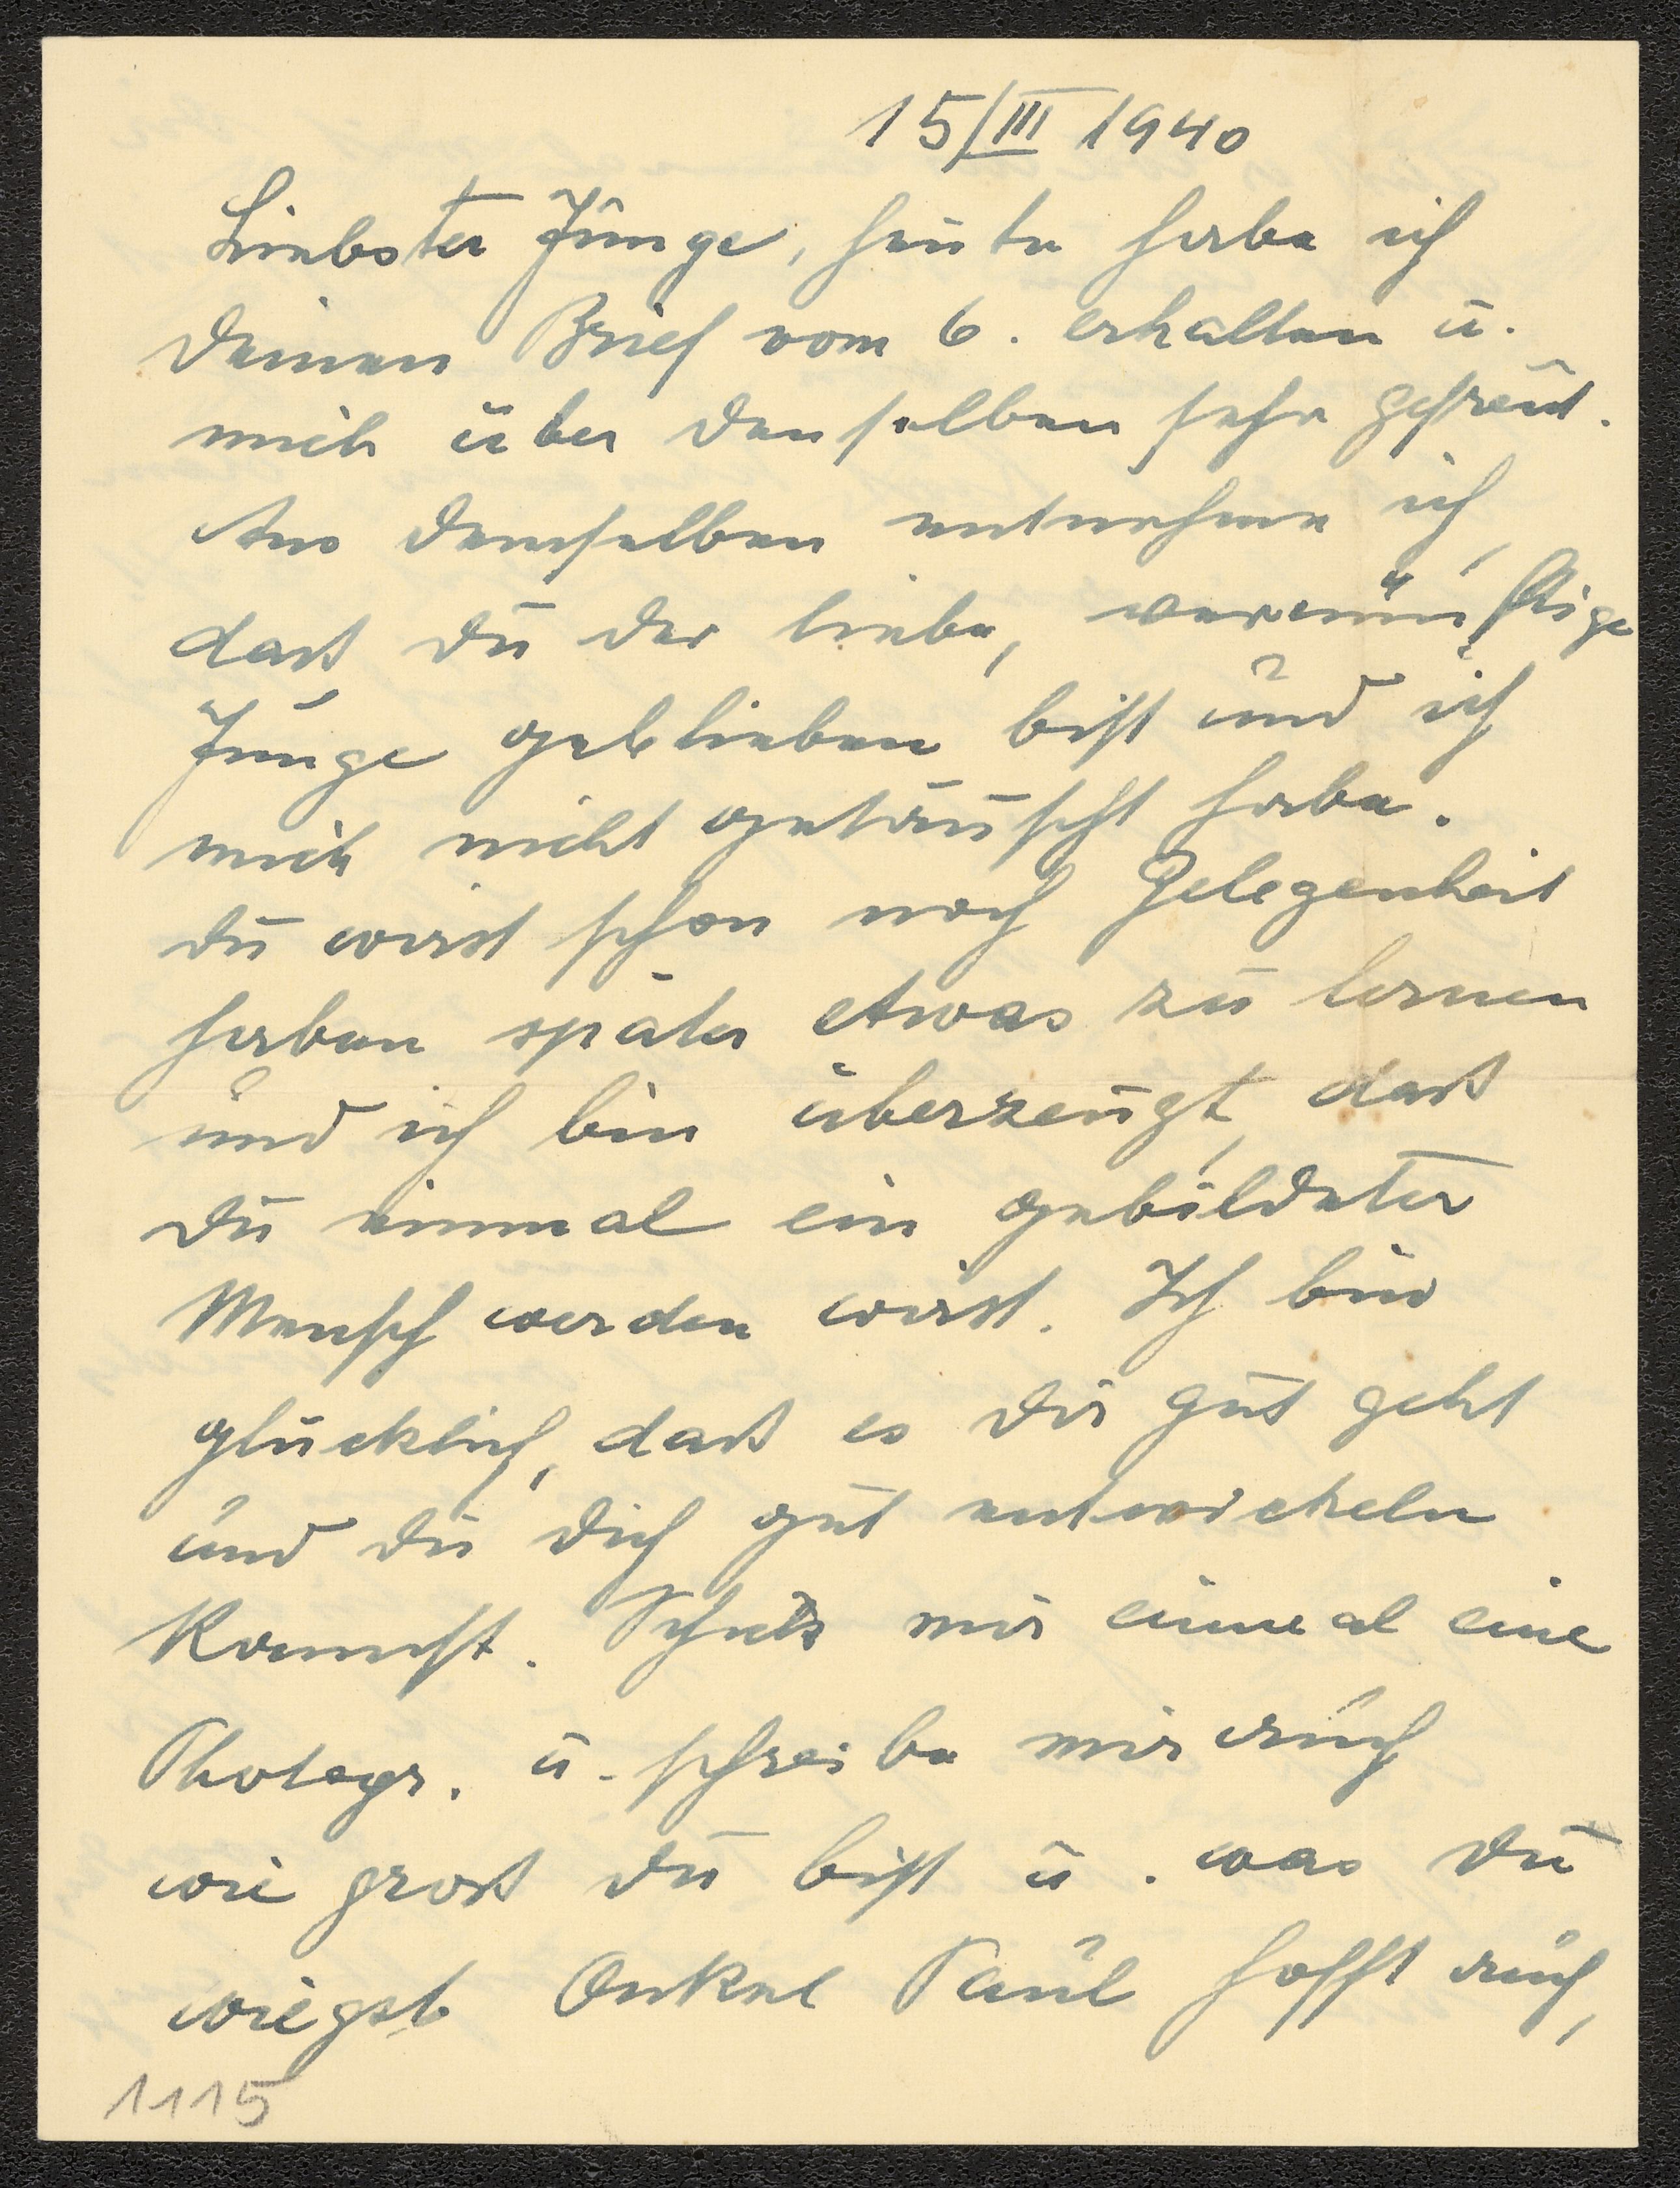 15/III 1940
Liebster Junge, heute habe ich
Deinen Brief vom 6. erhalten u.
mich über denselben sehr gefreut.
Aus demselben entnehme ich,
dass Du der liebe, vernünftige
Junge geblieben bist und ich
mich nicht getäuscht habe.
Du wirst schon noch Gelegenheit
haben später etwas zu lernen
und ich bin überzeugt, dass
Du einmal ein gebildeter
Mensch werden wirst. Ich bin
glücklich, dass es Dir gut geht
und Du Dich gut entwickeln
kannst. Schick mir einmal eine
Photogr. u. schreibe mir auch
wie gross Du bist u. was Du
wiegst Onkel Paul hofft auch,
1115